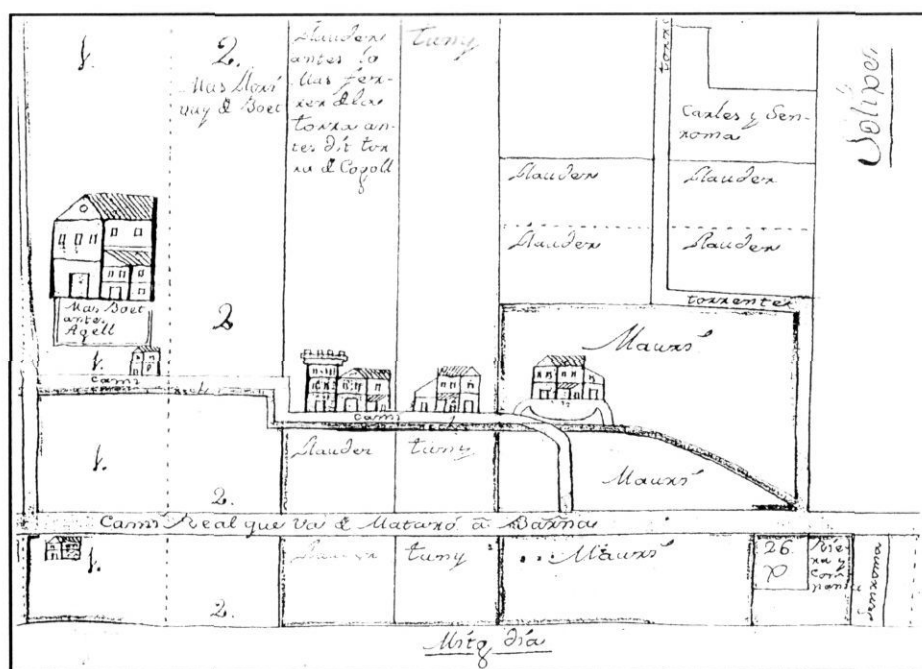 1.
2.
Mas Llori
nay d Boet
Llauder
antes lo
Mas fer-
rer d la
torra an-
tes dit tor
ra d Cogoll
tuny
torre
Carles y Sen-
roma
Llauder
Llauder
Llauder
Llauder
Solíper
torrente
Mas Boet
antes
Agell
2
1.
Maurí
cami
cami
1.
2.
Llauder
tuny
Maurí
Cami Real que va d Mataró a Barña
1.
2.
Llauder
tuny
Maurí
26.
P
Rie-
ra y
com
pania
Senroma
Mitg dia